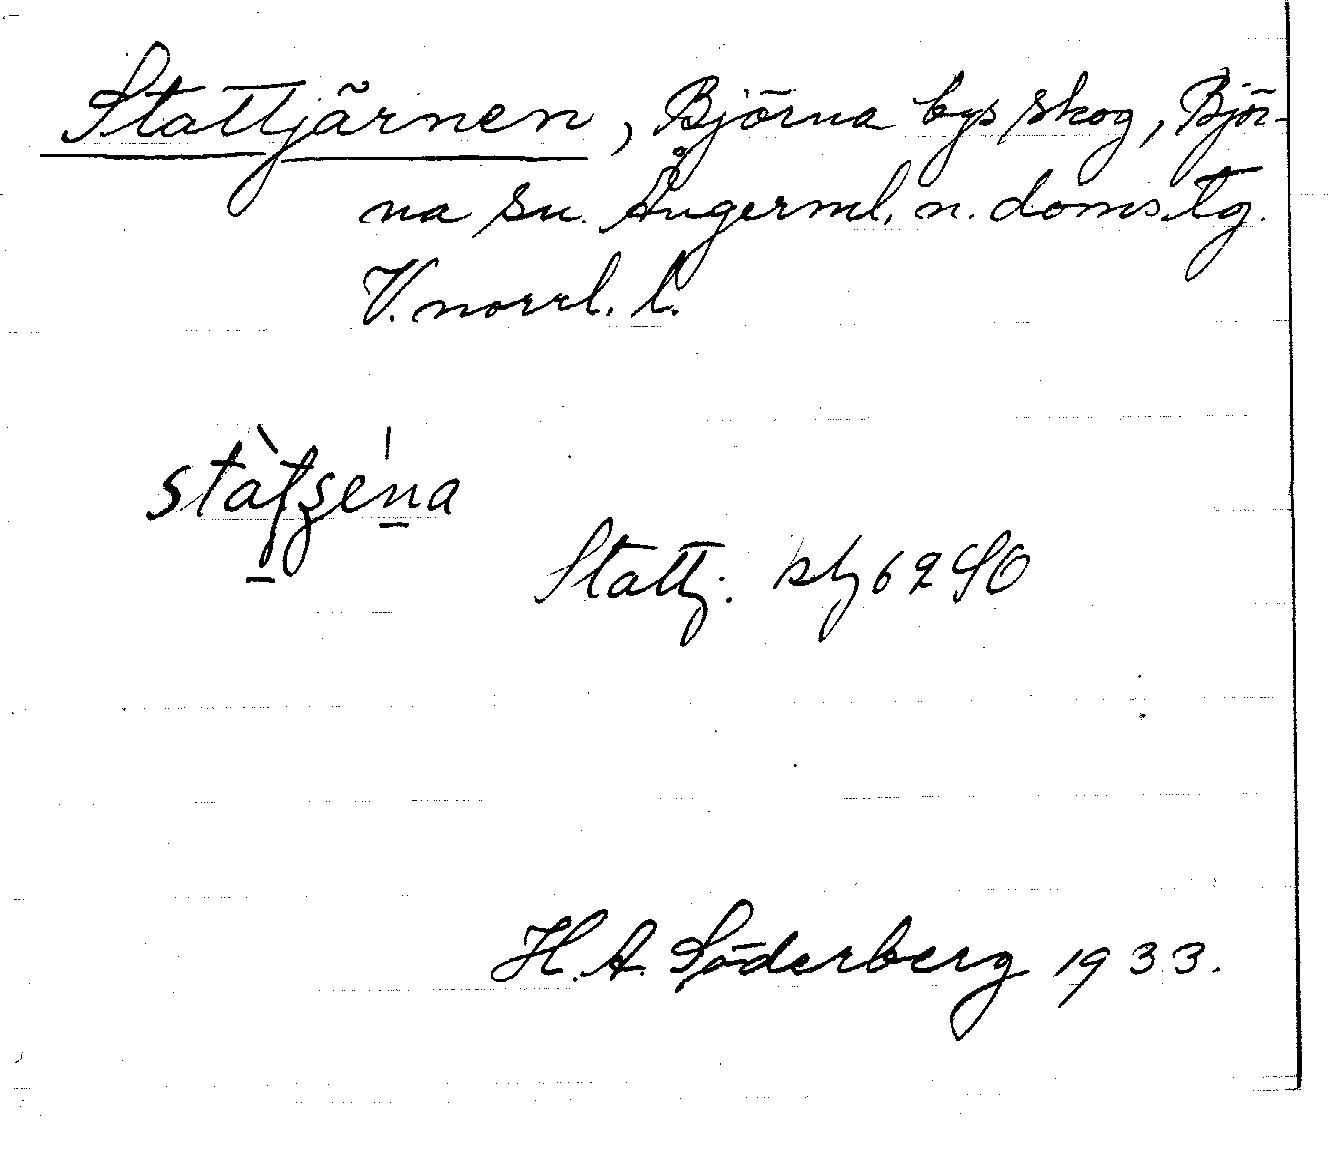 Stattjärnen, Björna bys skog, Björ-
na sn. Ångerml. n. doms.tg.
V. norrl. l.
Stattj. 62 SO
H. A. Söderberg 1933.